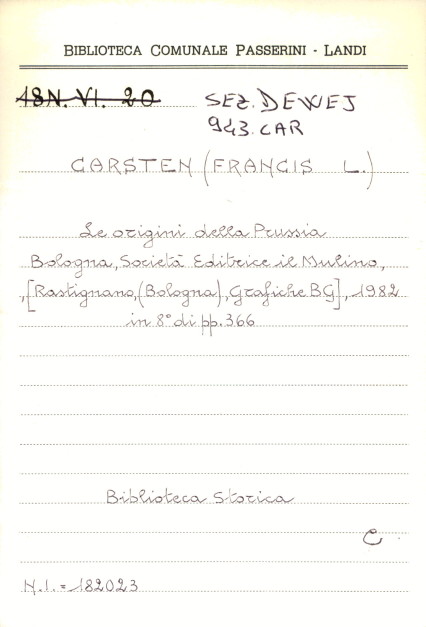 BIBLIOTECA COMUNALE PASSERINI - LANDI
18N. VI. 20 SEZ. DEWEY
943.CAR
CARSTEN (FRANCIS L.)
Le origini della Prussia
Bologna, Società Editrice il Mulino,
,[Rastignano, (Bologna), Grafiche BG], 1982
in 8° di pp. 366
Biblioteca Storica
C
N.I. = 182023